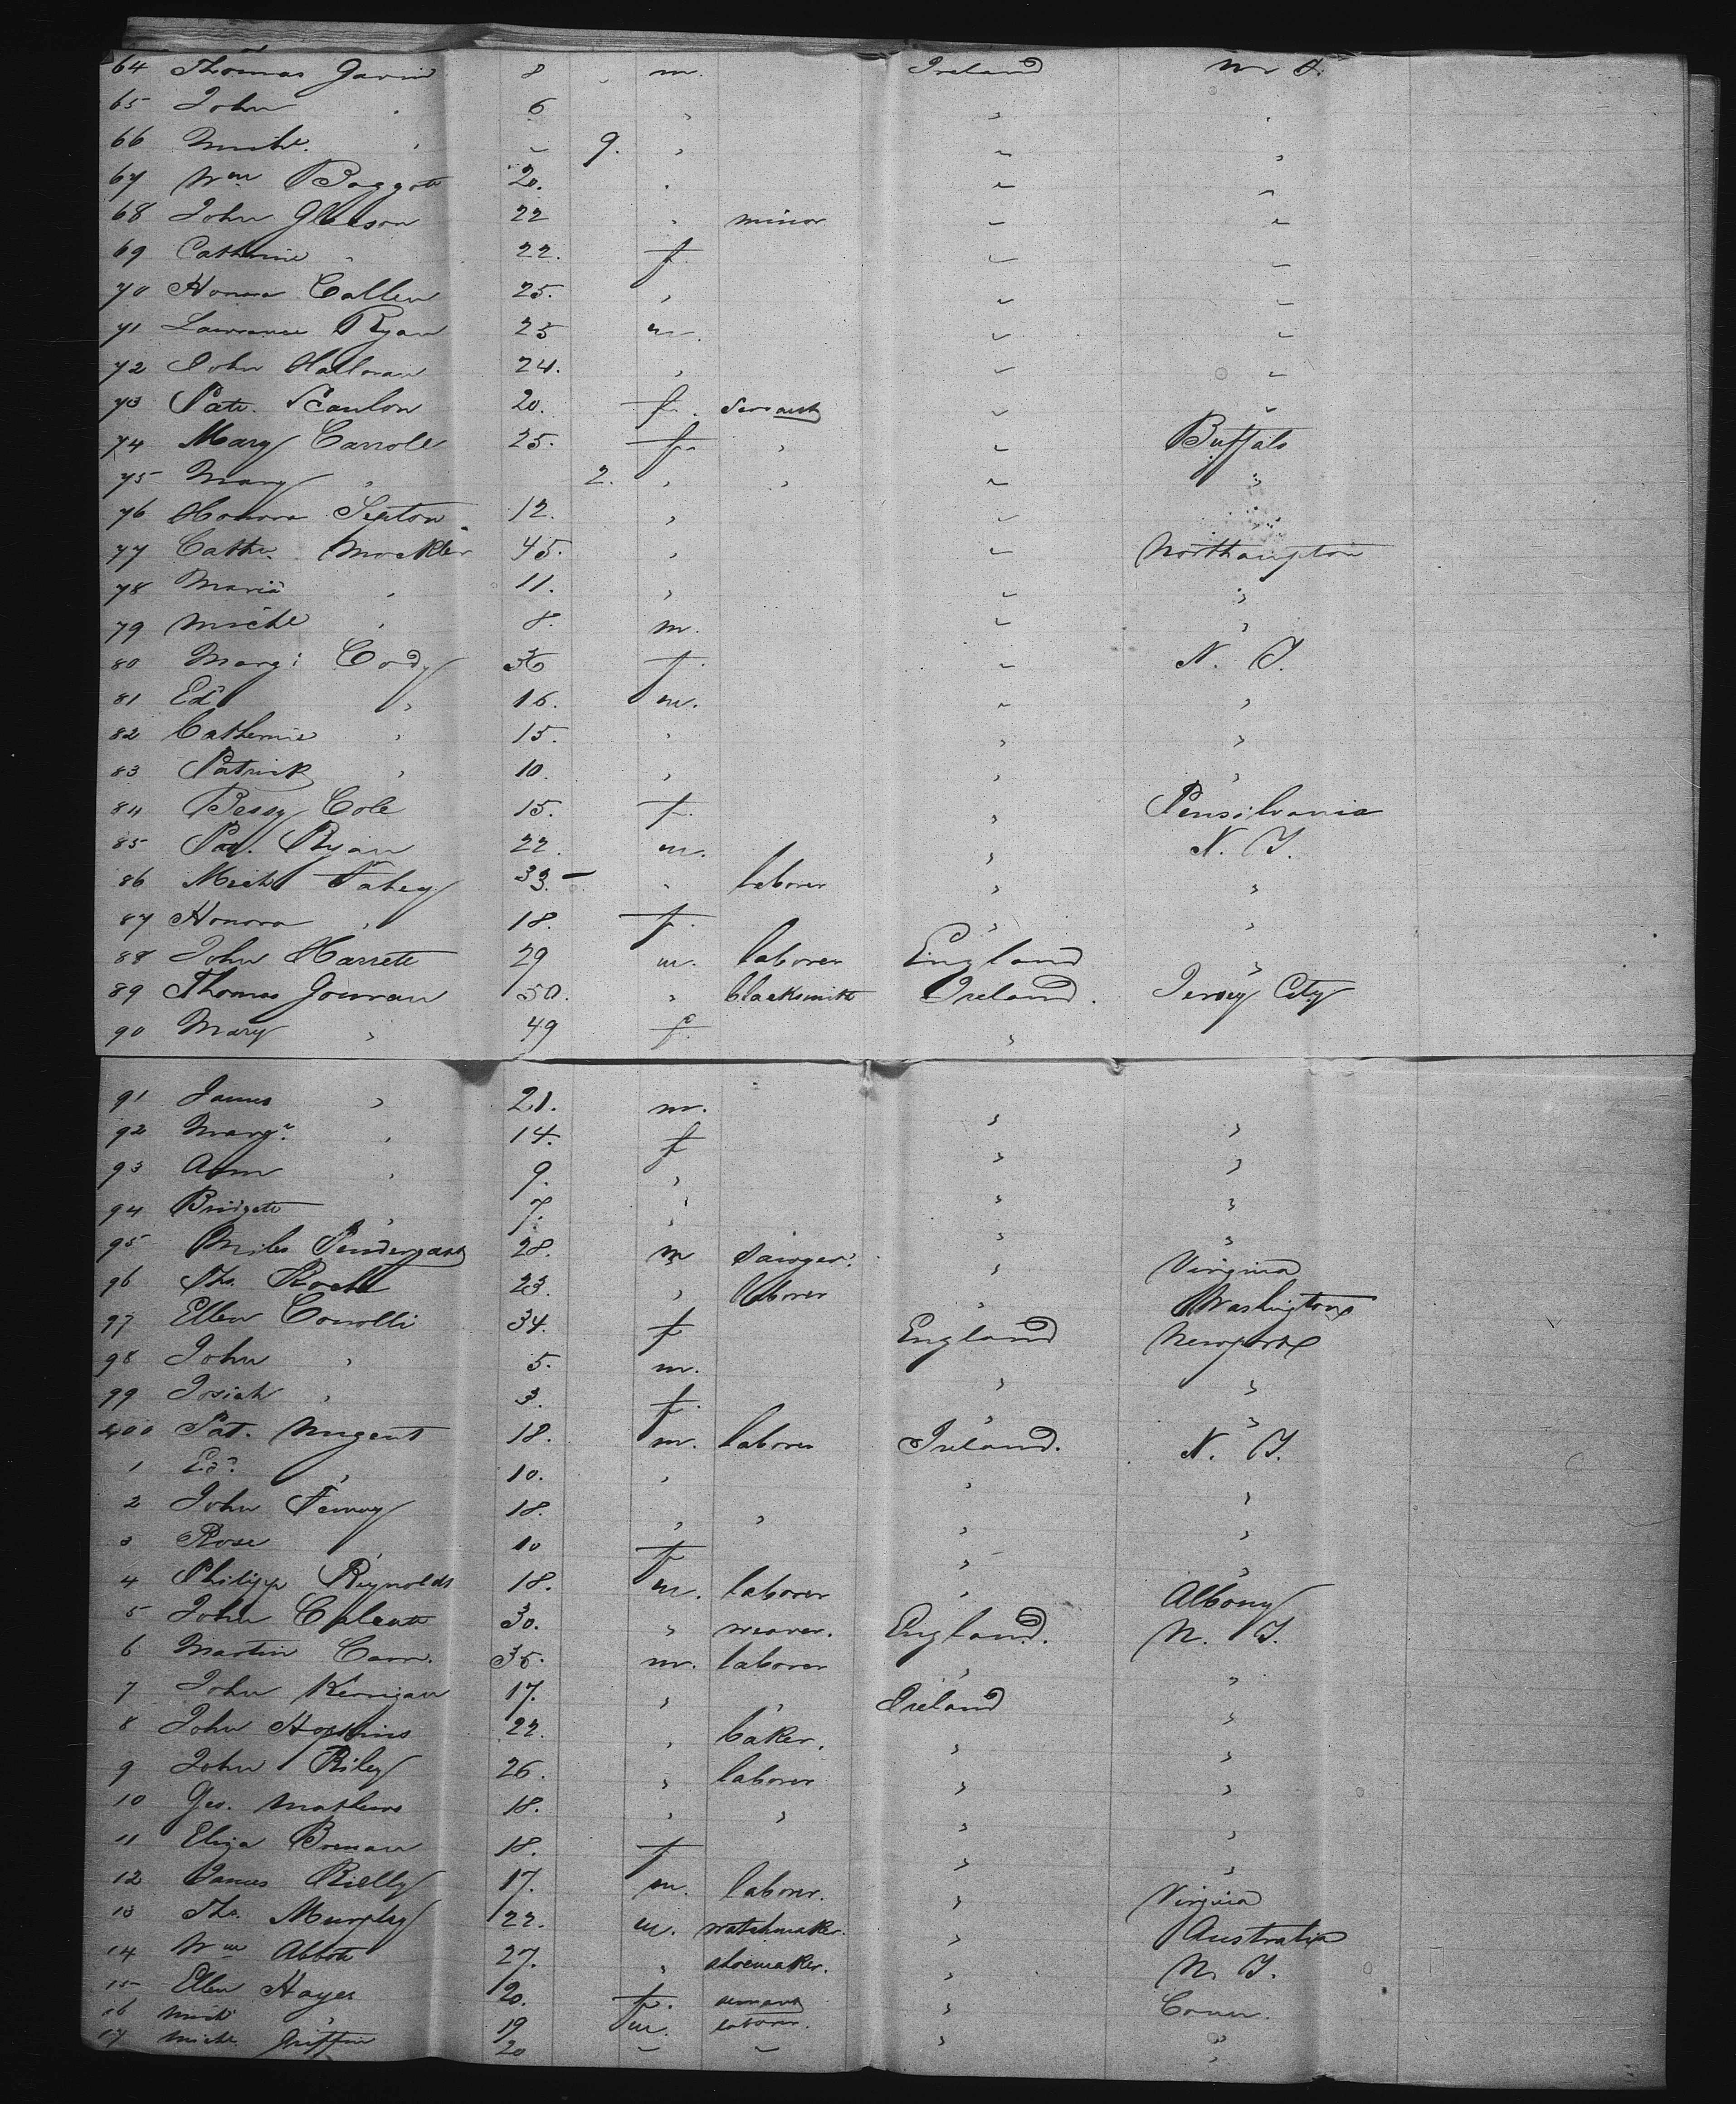 64 Thomas Gavin 8 m. Ireland N. Y.
65 John " 6 " " "
66 Michl. " " 9. " " "
67 Wm Baggott 20. " " "
68 John Gleeson 22 " minor " "
69 Catherine " 22. f " "
70 Honora Callen 25. " " "
71 Lawrance Ryan 25 m. " "
72 John Halloran 24. " " "
73 Patk. Scanlon 20. f. Servant " "
74 Mary Carroll 25. f. " " Buffalo
75 Mary " 2. " " " "
76 Honora Sexton 12. " "
77 Cathe. Mockler 45. " " Northampton
78 Maria " 11. " " "
79 Michl " 8. m. " "
80 Marg: Cody 36 f. " N. Y.
81 Ed " 16. m. " "
82 Catherine " 15. " " "
83 Patrick " 10. " " "
84 Bessy Cole 15. f. " Pensilvania
85 Pat. Ryan 22. m. " N. Y.
86 Michl Fahey 33. " laborer " "
87 Honora " 18. f. " "
88 John Harrett 29 m. laborer England "
89 Thomas Gowran 50. " blacksmith Ireland. Jersey City
90 Mary " 49 f. "
91 James " 21. m. " "
92 Margt. " 14. f " "
93 Ann " 9. " " "
94 Bridgett " 7. " " "
95 Miles Pendergast 28. m sawyer. " Virginia
96 Ths. Roche 23. " laborer " Washington
97 Ellen Conolli 34. f England Newport
98 John " 5. m. " "
99 Josiah " 3. f. " "
400 Pat. Nugent 18. m. laborer Ireland. N. Y.
1 Ed. " 10. " " "
2 John 18. " " " "
3 Rose " 10 f " "
4 Philipp Reynolds 18. m. laborer " Albany
5 John 30. " weaver. England. N. Y.
6 Martin Carr. 35. m. laborer " "
7 John Kerrigan 17. " " Ireland "
8 John Hopkins 22. " baker. " "
9 John Riley 26. " laborer " "
10 Geo. Mathews 18. " " " "
11 Eliza Brenan 18. f " "
12 James Rielly 17. m. laborer. " Virginia
13 Ths. Murphy 22. m. watchmaker. " Australia
14 Wm Abbott 27. " shoemaker. " N. Y.
15 Ellen Hayes 20. f. servant " Conn.
16 Michl " 19 m. laborer. " "
17 Michl. Griffin 20 " " "